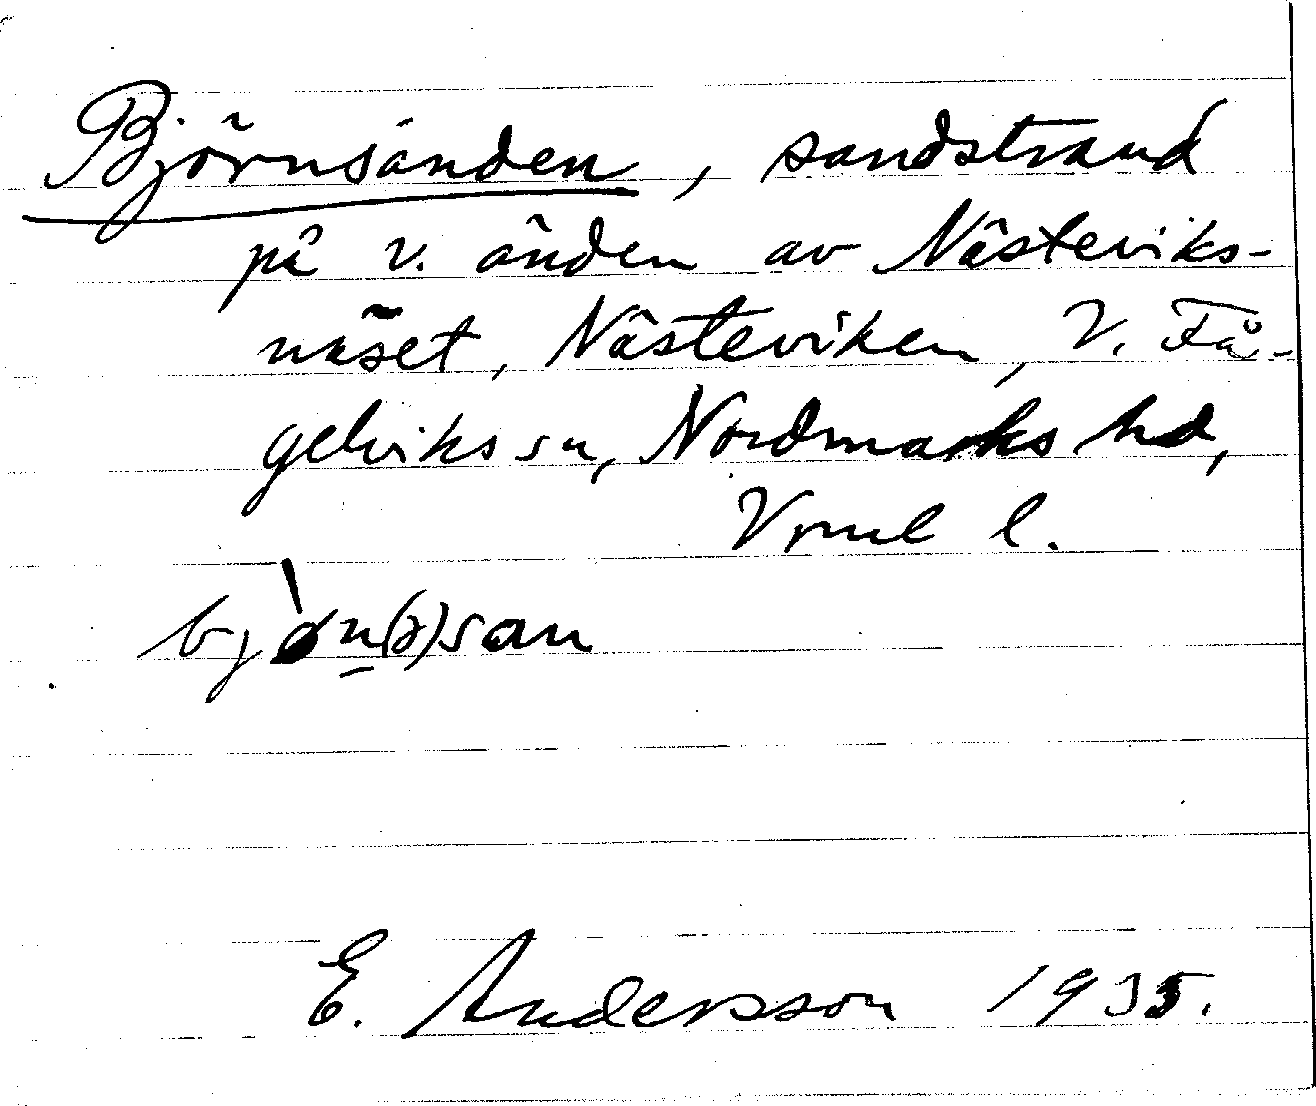 Björnsanden, sandstrand
på v. änden av Nästeviks-
näset, Nästeviken, V. Få-
gelviks sn, Nordmarks hd,
Vrml l.
bjò̀n̠(ə)san
E. Andersson 1935.